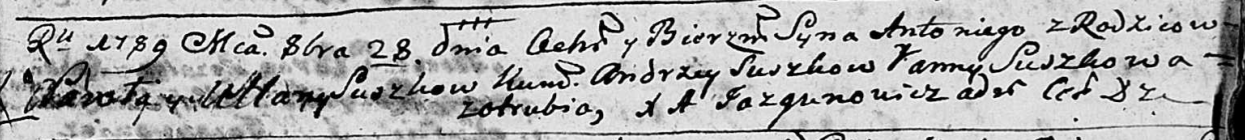 Ru 1789 Mca. 8bra 28. dnia Ochr y Bierzm Syna Antoniego z Rodzicow
Suszkow Kum. Andrzey Suszkow Panny Suszkowa
X A Jazgunowicz adm Cer Dz